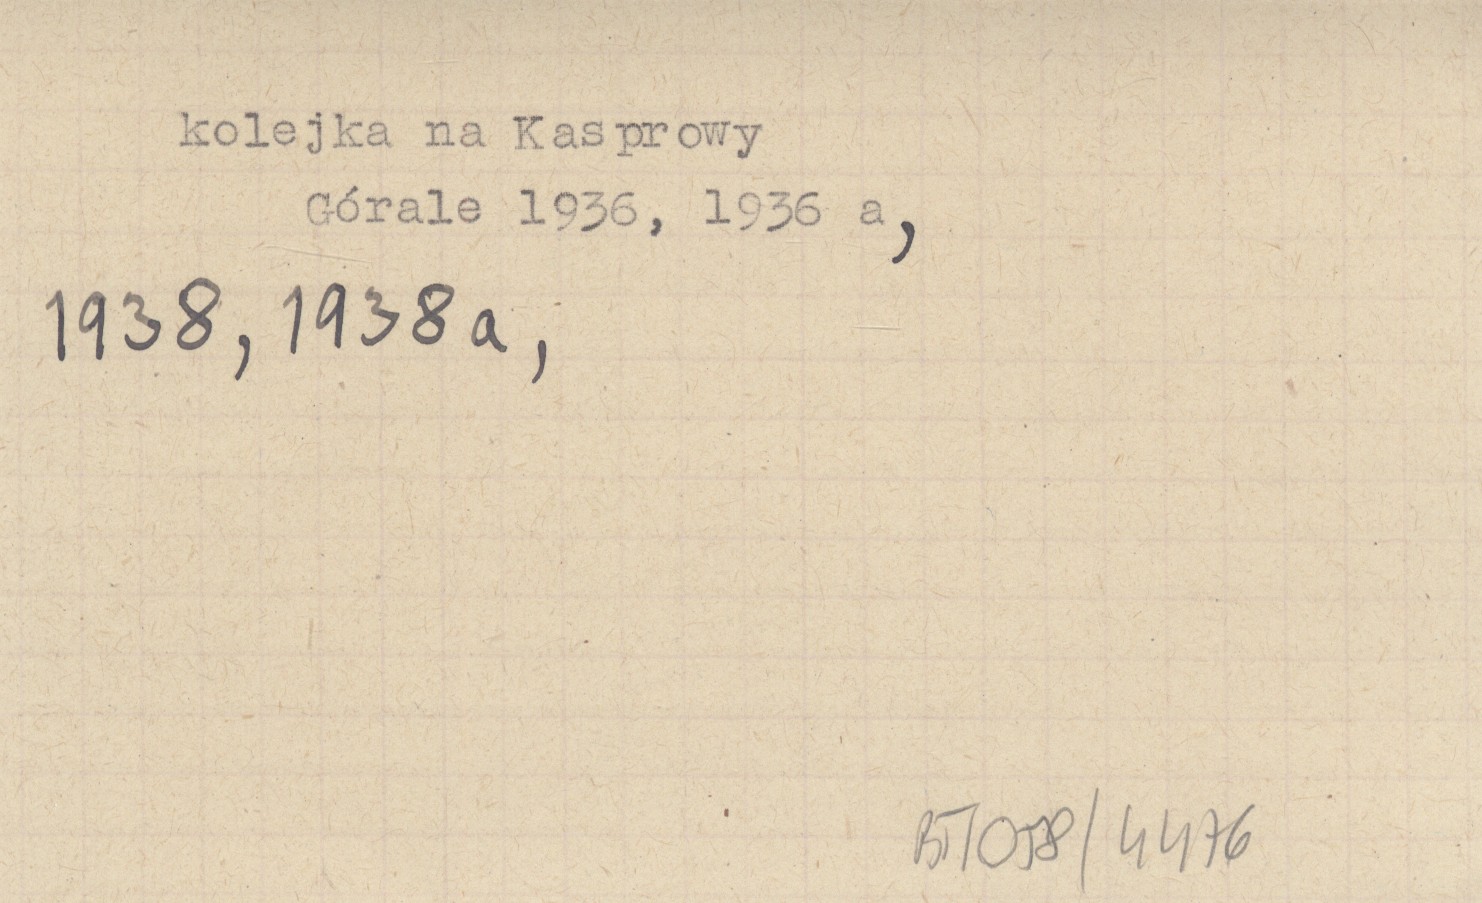 kolejka na Kasprowy
Górale 1936, 1936 a,
1938, 1938a,
BT/058/4476